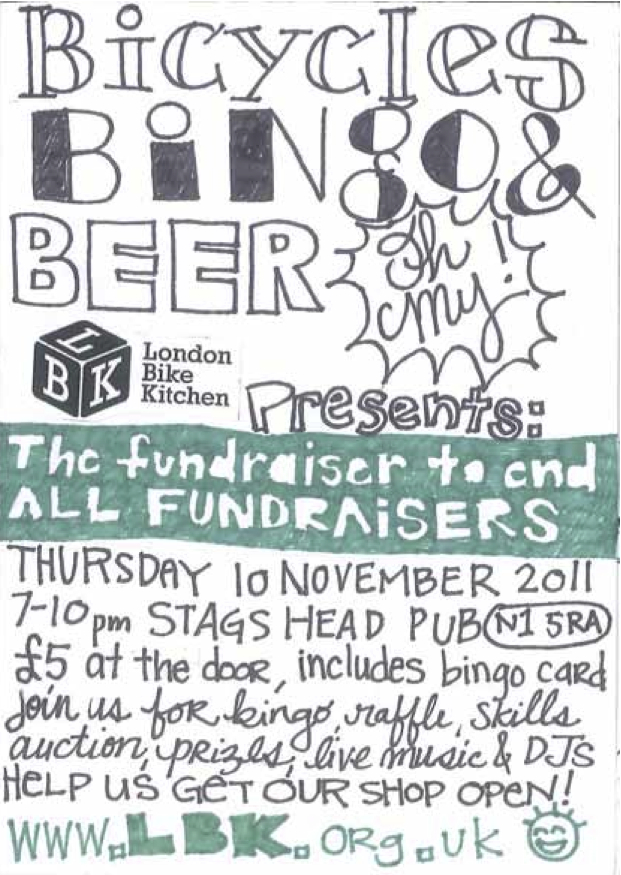 Bicycles
BiNgo &
BEER
Oh
my!
L
B K
London
Bike
Kitchen
Presents:
The fundraiser to end
ALL FUNDRAiSERS
THURSDAY 10 NOVEMBER 2011
7-10pm STAGS HEAD PUB N1 5RA
£5 at the door, includes bingo card
join us for bingo, raffle, skills
auction, prizes, live music & DJs
HELP US GET OUR SHOP OPEN!
WWW.LBK.org.uk